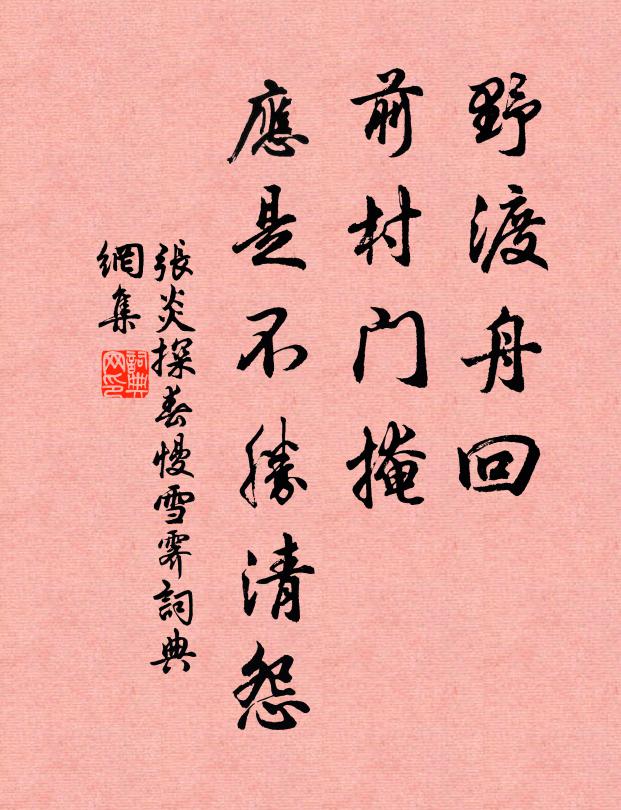 野渡舟回
前村門掩
應是不勝清怨
張炎探春慢雪霽詞典
網集
詞典
网印